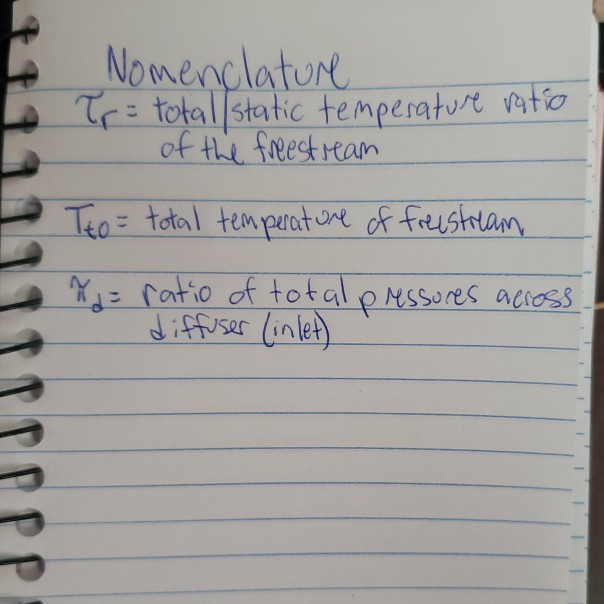 Nomenclature
τr = total/static temperature ratio
of the freestream
Tt0 = total temperature of freestream
πd = ratio of total pressures across
diffuser (inlet)